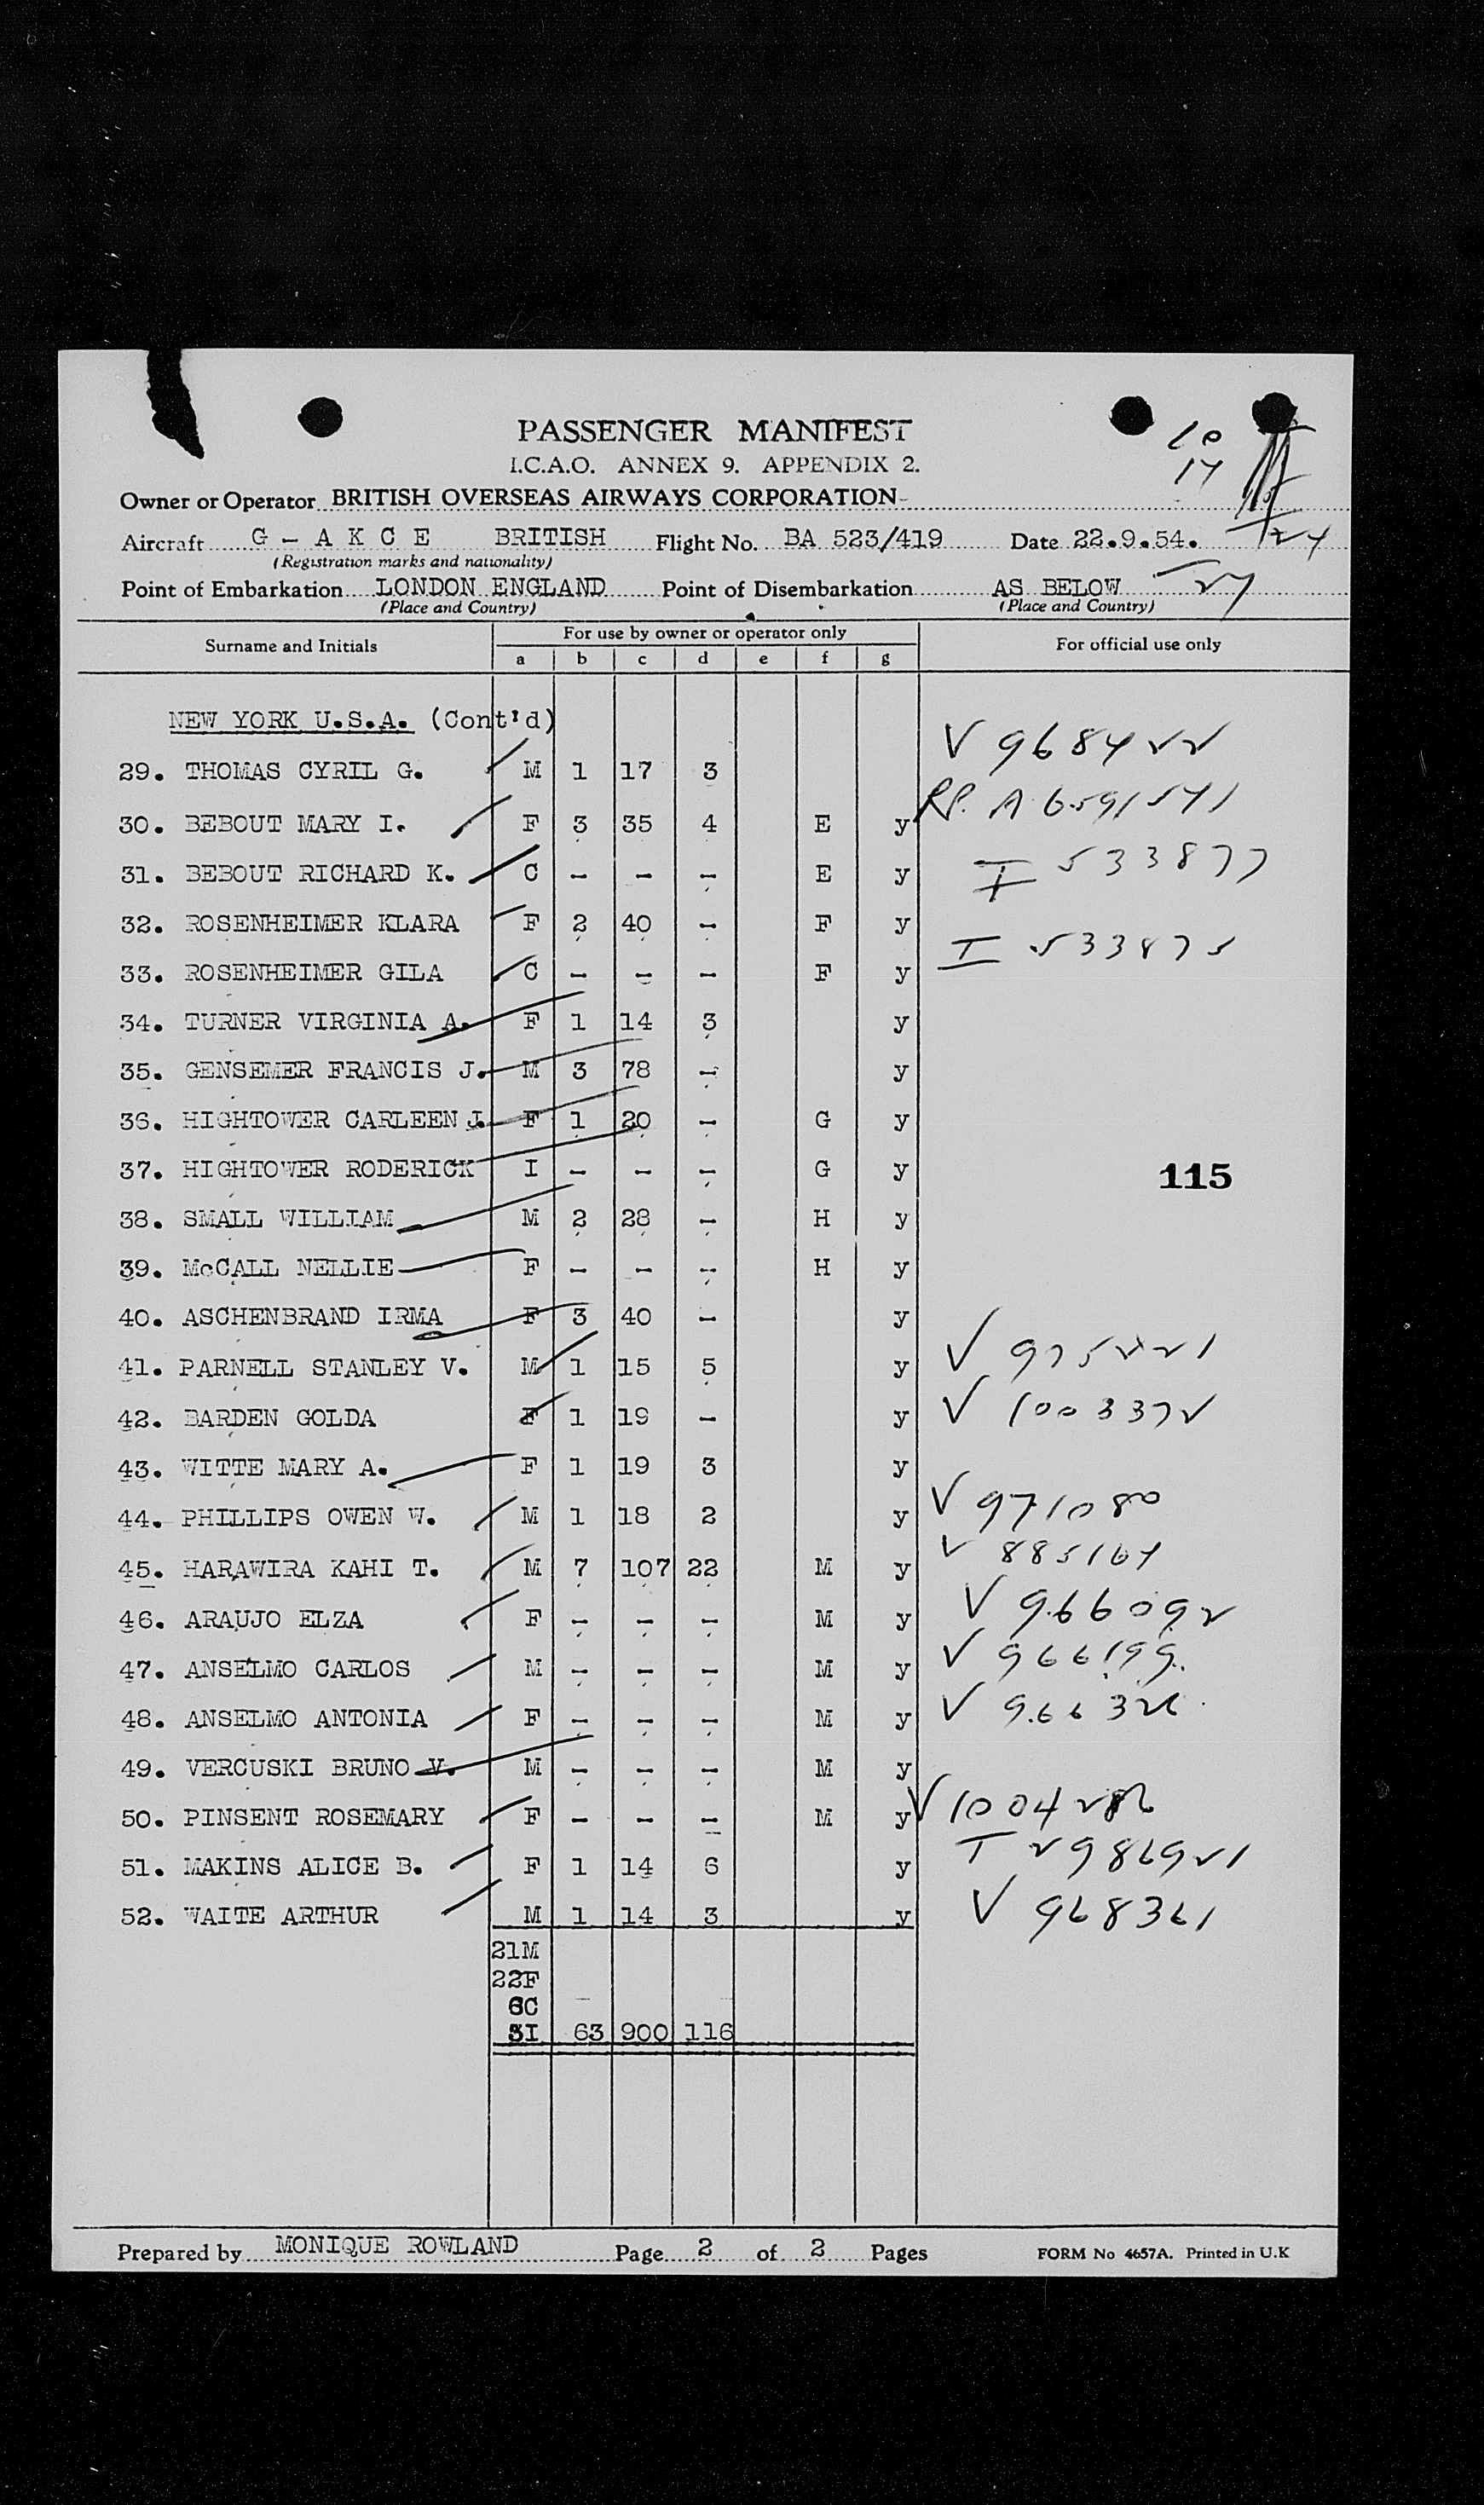 PASSENGER MANIFEST
I.C.A.O. ANNEX 9. APPENDIX 2.
Owner or Operator BRITISH OVERSEAS AIRWAYS CORPORATION
Aircraft G - A K C E BRITISH Flight No. BA 523/419 Date 22.9.54.
(Registration marks and nationality)
Point of Embarkation LONDON ENGLAND Point of Disembarkation AS BELOW
(Place and Country) (Place and Country)
Surname and Initials For use by owner or operator only For official use only
a b c d e f g
NEW YORK U.S.A. (Cont'd)
29. THOMAS CYRIL G. M 1 17 3 V 968422
30. BEBOUT MARY I. F 3 35 4 E y RP. A 6591541
31. BEBOUT RICHARD K. C - - - E y I 533877
32. ROSENHEIMER KLARA F 2 40 - F y I 533875
33. ROSENHEIMER GILA C - - - F y
34. TURNER VIRGINIA A. F 1 14 3 y
35. GENSEMER FRANCIS J. M 3 78 - y
36. HIGHTOWER CARLEEN J. F 1 20 - G y
37. HIGHTOWER RODERICK I - - - G y
115
38. SMALL WILLIAM M 2 28 - H y
39. McCALL NELLIE F - - - H y
40. ASCHENBRAND IRMA F 3 40 - y
41. PARNELL STANLEY V. M 1 15 5 y V 975221
42. BARDEN GOLDA F 1 19 - y V 1003372
43. WITTE MARY A. F 1 19 3 y
44. PHILLIPS OWEN W. M 1 18 2 y V 971080
45. HARAWIRA KAHI T. M 7 107 22 M y V 885164
46. ARAUJO ELZA F - - - M y V 966092
47. ANSELMO CARLOS M - - - M y V 966199
48. ANSELMO ANTONIA F - - - M y V
49. VERCUSKI BRUNO V. M - - - M y
50. PINSENT ROSEMARY F - - - M y V
51. MAKINS ALICE B. F 1 14 6 y
52. WAITE ARTHUR M 1 14 3 y V 968361
21M
22F
6C
3I 63 900 116
Prepared by MONIQUE ROWLAND Page 2 of 2 Pages FORM No 4657A. Printed in U.K